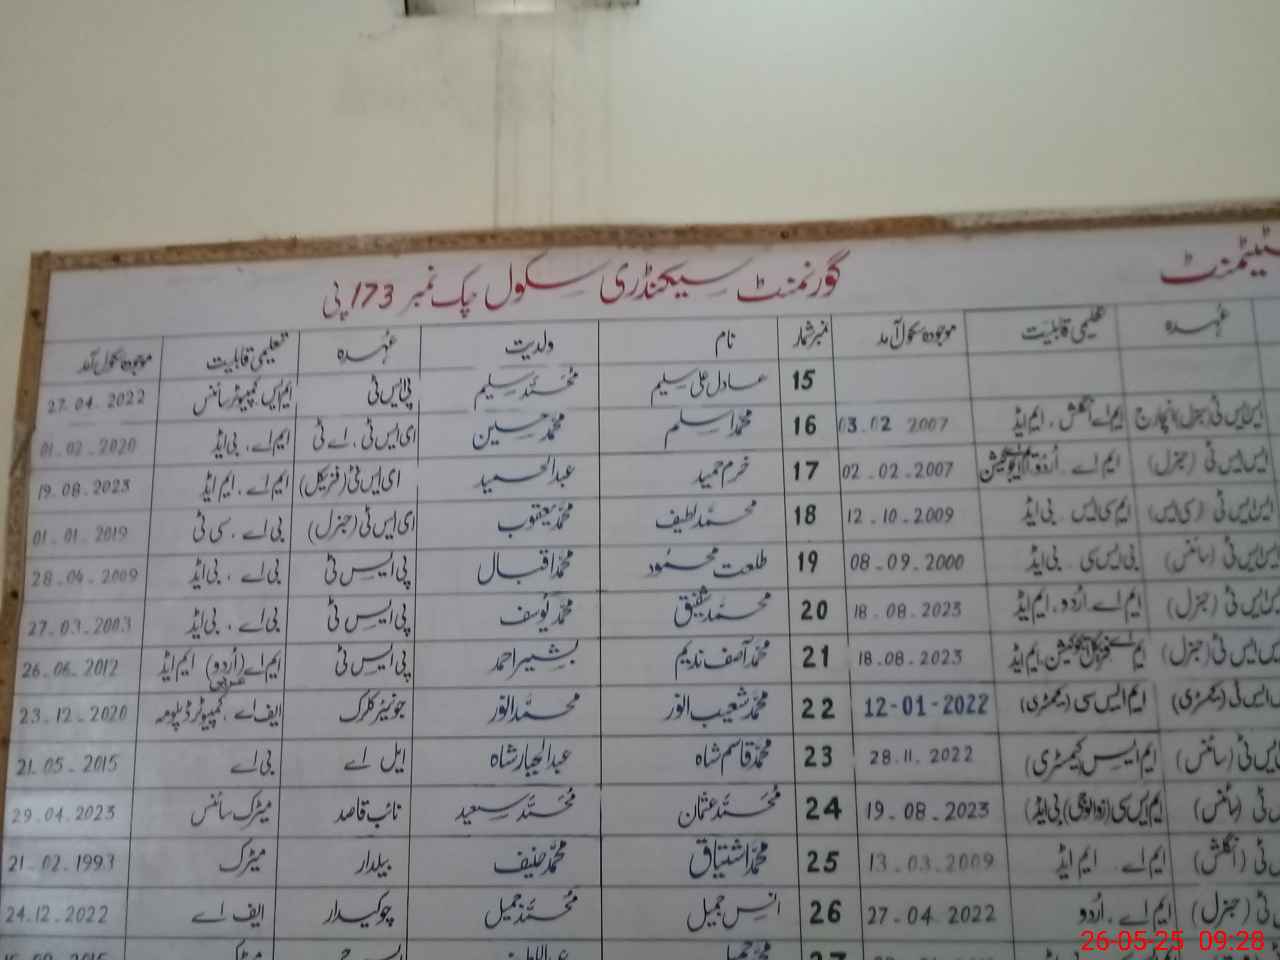 گورنمنٹ سیکنڈری سکول چک نمبر 173 پی
عہدہ تعلیمی قابلیت موجودہ سکول آمد نمبر شمار نام ولدیت عہدہ تعلیمی قابلیت موجودہ سکول آمد
15 عادل علی سلیم محمد سلیم پی ایس ٹی ایم ایس کمپیوٹر سائنس 27.04.2022
ایم اے انگلش . ایم ایڈ 03.02 2007 16 محمد اسلم محمد حسین ای ایس ٹی . اے ٹی ایم اے . بی ایڈ 01.02.2020
(جنرل) ایم اے . اُردو 02.02.2007 17 خرم حمید عبدالحمید ای ایس ٹی (فزیکل) ایم اے . ایم ایڈ 19.08.2023
(سی ایس) ایم سی ایس . بی ایڈ 12.10.2009 18 محمد لطیف محمد یعقوب ای ایس ٹی (جنرل) بی اے . سی ٹی 01.01.2019
(سائنس) بی ایس سی . بی ایڈ 08.09.2000 19 طلعت محمود محمد اقبال پی ایس ٹی بی اے . بی ایڈ 28.04.2009
(جنرل) ایم اے اُردو . ایم ایڈ 18.08.2023 20 محمد شفیق محمد یوسف پی ایس ٹی بی اے . بی ایڈ 27.03.2003
(جنرل) 18.08.2023 21 محمد آصف ندیم بشیر احمد پی ایس ٹی ایم اے (اُردو) ایم ایڈ 26.06.2012
عربی
(کیمسٹری) ایم ایس سی (کیمسٹری) 12-01-2022 22 محمد شعیب انور محمد انور جونیئر کلرک ایف اے . کمپیوٹر ڈپلومہ 23.12.2020
(سائنس) ایم ایس کیمسٹری) 28.11.2022 23 محمد قاسم شاہ عبدالجبار شاہ ایل اے بی اے 21.05.2015
(سائنس) ایم ایس سی (زوالوجی) بی ایڈ) 19.08.2023 24 محمد عثمان محمد سعید نائب قاصد میٹرک سائنس 29.04.2023
(انگلش) ایم اے . ایم ایڈ 13.03.2009 25 محمد اشتیاق محمد حنیف بیلدار میٹرک 21.02.1993
(جنرل) ایم اے . اُردو 27.04.2022 26 انس جمیل محمد جمیل چوکیدار ایف اے 24.12.2022
27
26-05-25 09:28